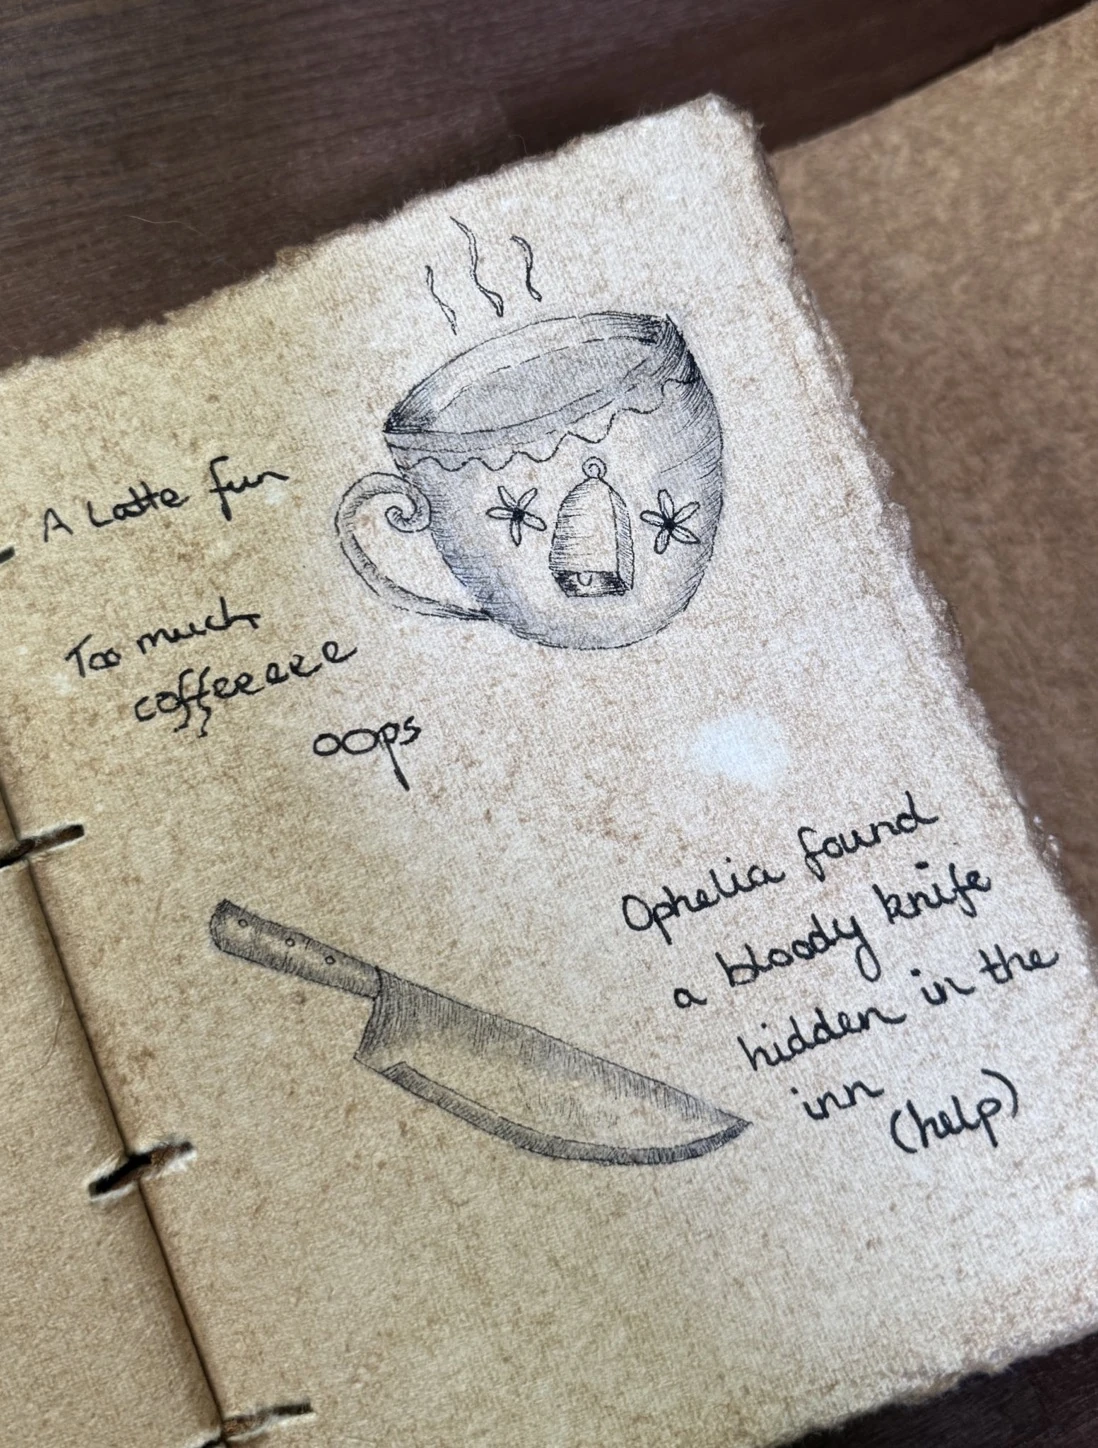 A Latte fun
Too much
coffeeeee
oops
Ophelia found
a bloody knife
hidden in the
inn
(help)